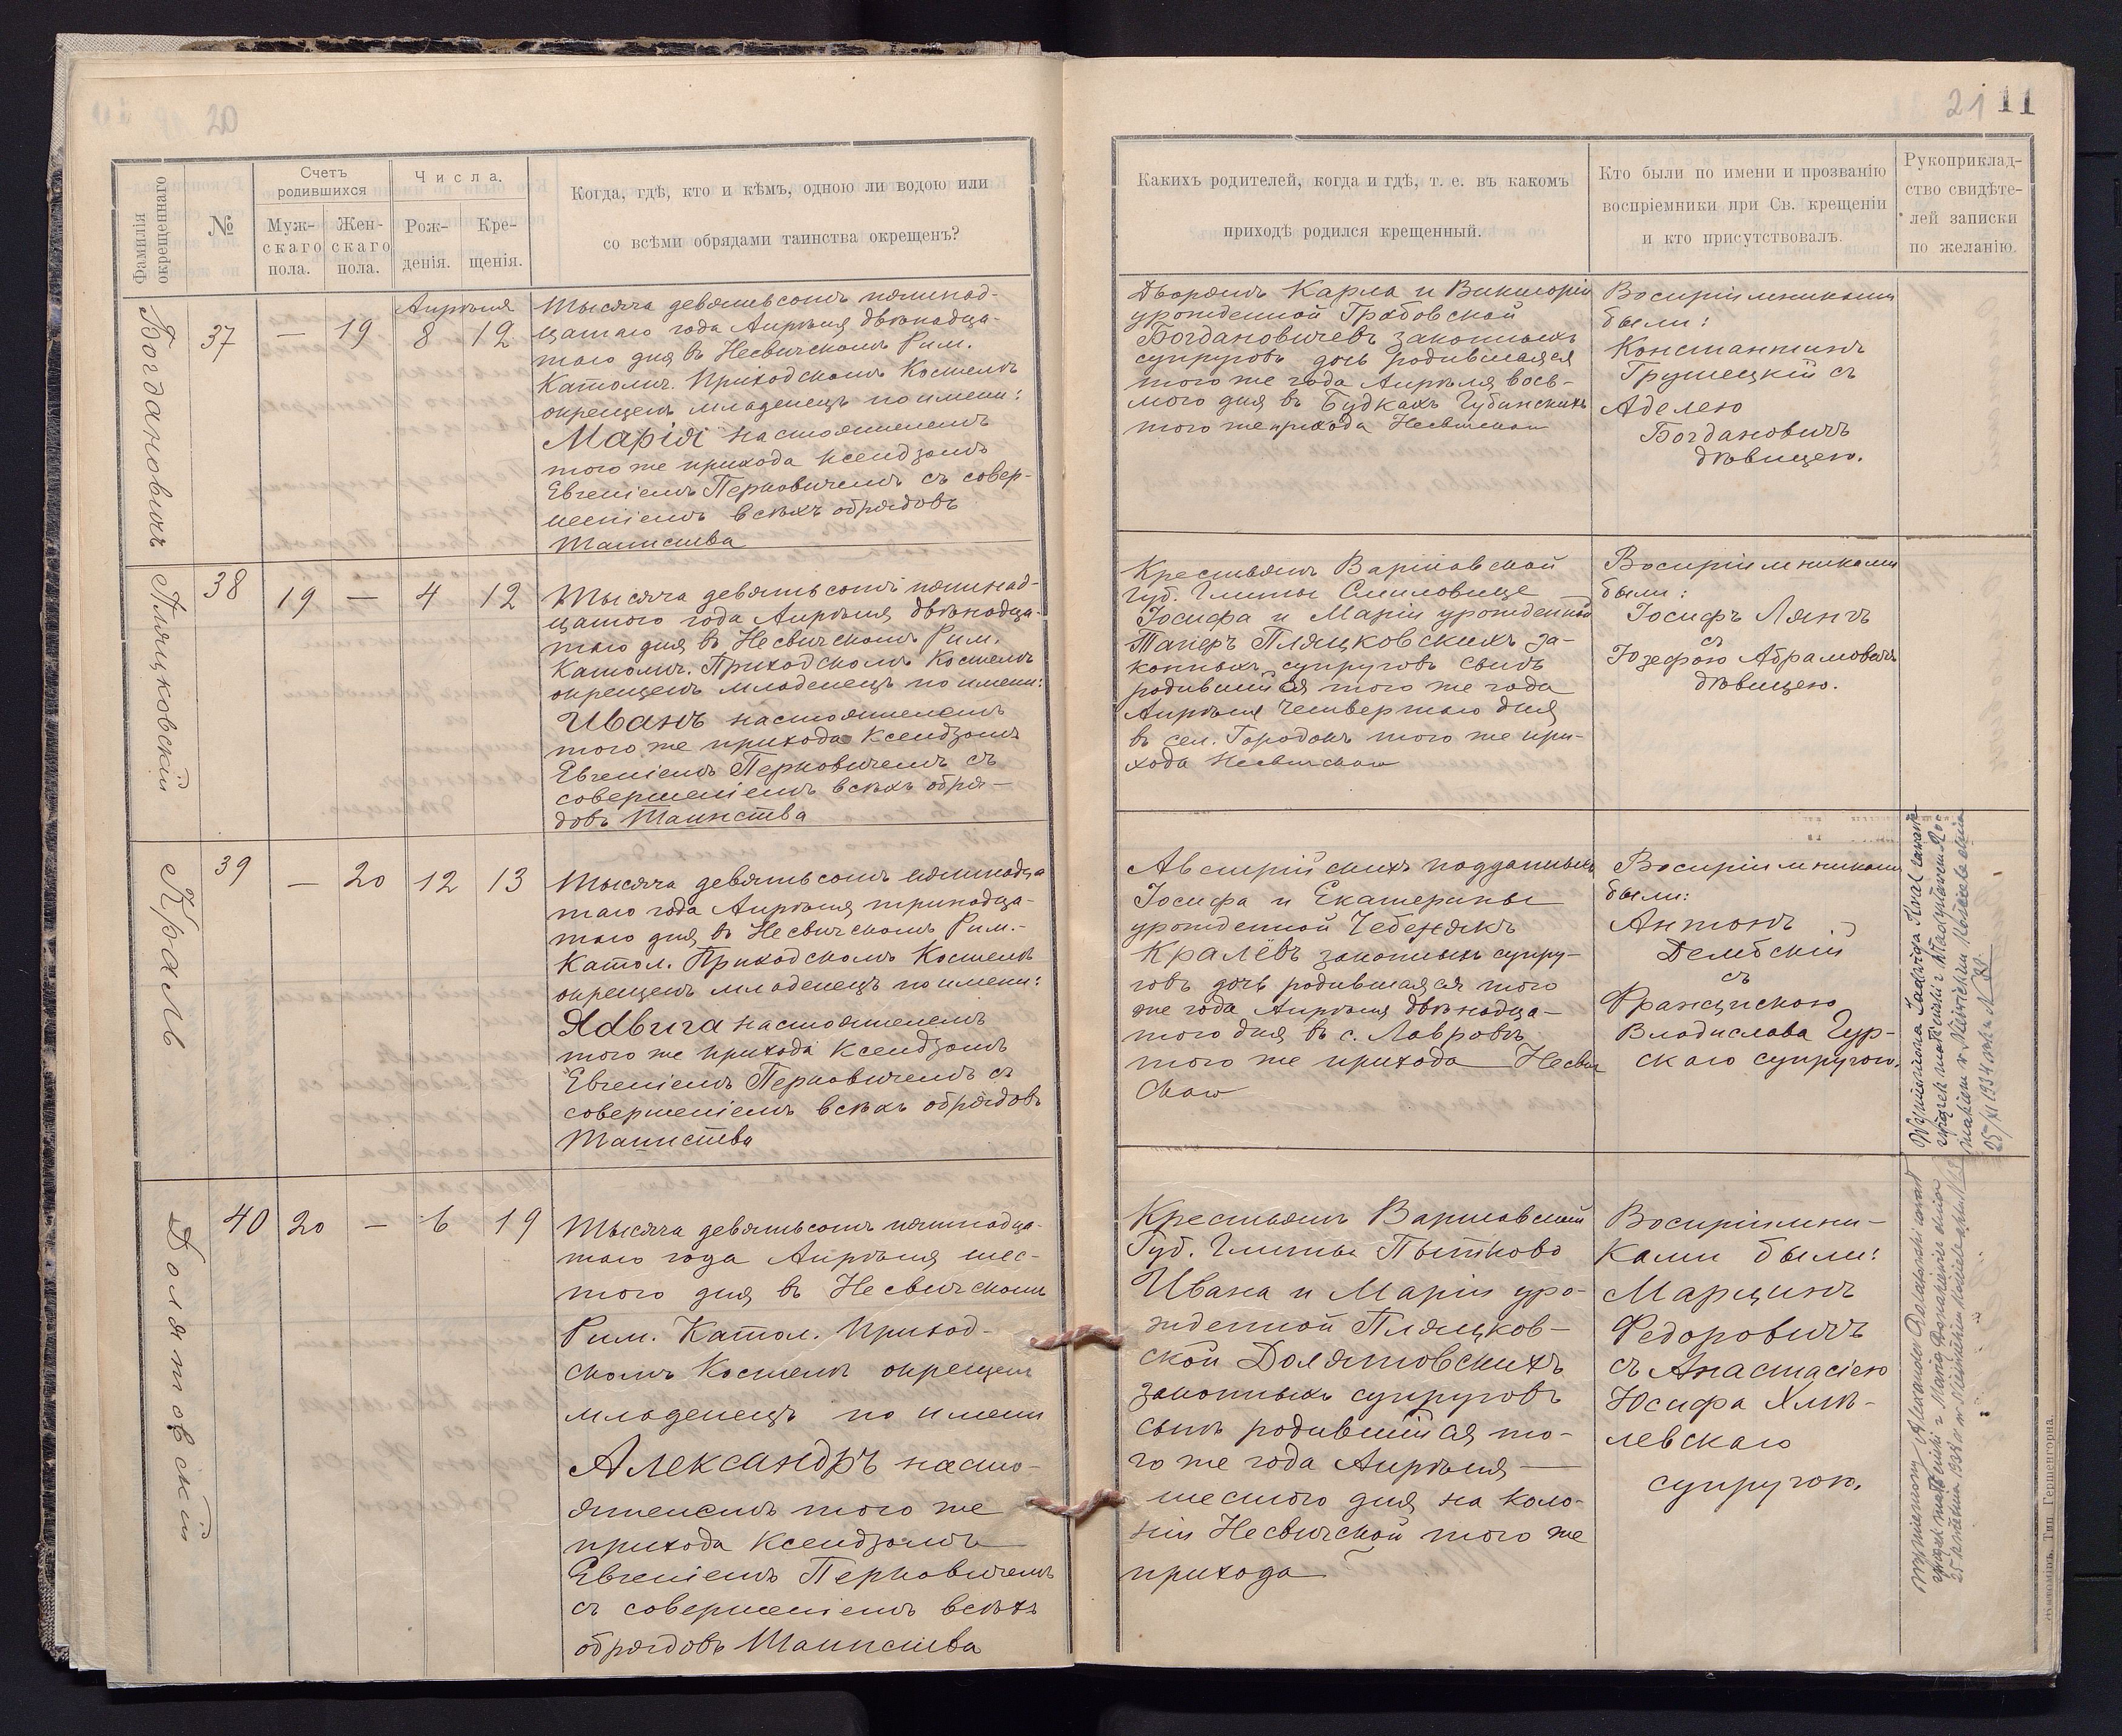 20
Фамилія окрещеннаго
№
Счетъ родившихся
Муж-
скаго
пола.
Жен-
скаго
пола.
Числа.
Рож-
денія.
Кре-
щенія.
Когда, гдѣ, кто и кѣмъ, одною ли водою или
со всѣми обрядами таинства окрещенъ?
Богдановичъ
37
—
19
Апрѣля
8
12
Тысяча девятьсотъ пятнад-
цатаго года Апрѣля двѣнадца-
таго дня въ Несвичскомъ Рим.
Католич. Приходскомъ Костелѣ
окрещенъ младенецъ по имени:
Марія настоятелемъ
того же прихода Ксендзомъ
Евгеніемъ Перковичемъ съ совер-
шеніемъ всѣхъ обрядовъ
Таинства
Пляцковскій
38
19
—
4
12
Тысяча девятьсотъ пятнад-
цатого года Апрѣля двѣнадца-
таго дня въ Несвичскомъ Рим.
Католич. Приходскомъ Костелѣ
окрещенъ младенецъ по имени:
Иванъ настоятелемъ
того же прихода Ксендзомъ
Евгеніемъ Перковичемъ съ
совершеніемъ всѣхъ обря-
довъ Таинства
Краль
39
—
20
12
13
Тысяча девятьсотъ пятнадца
таго года Апрѣля тринадца-
таго дня въ Несвичскомъ Рим.-
Катол. Приходскомъ Костелѣ
окрещенъ младенецъ по имени:
Ядвига настоятелемъ
того же прихода Ксендзомъ
Евгеніемъ Перковичемъ съ
совершеніемъ всѣхъ обрядовъ
Таинства
Долятовскій
40
20
—
6
19
Тысяча девятьсотъ пятнадца-
таго года Апрѣля шес-
того дня въ Несвичскомъ
Рим. Катол. Приход-
скомъ Костелѣ окрещенъ
младенецъ по имени
Александръ насто-
ятелемъ того же
прихода Ксендзомъ
Евгеніемъ Перковичемъ
съ совершеніемъ всѣхъ
обрядовъ Таинства
21 11
Какихъ родителей, когда и гдѣ, т. е. въ какомъ
приходѣ родился крещенный.
Кто были по имени и прозванію
воспріемники при Св. крещеніи
и кто присутствовалъ.
Рукоприклад-
ство свидѣте-
лей записки
по желанію.
Дворянъ Карла и Викторіи
урожденной Грабовской
Богдановичевъ законныхъ
супруговъ дочь родившаяся
того же года Апрѣля вось-
мого дня въ Будкахъ Губинскихъ
того же прихода Несвичскаго
Воспріимниками
были:
Константинъ
Грушецкій съ
Аделею
Богдановичъ
дѣвицею.
Крестьянъ Варшавской
Губ. Гмины
Іосифа и Маріи урожденной
Таперъ Пляцковскихъ за-
конныхъ супруговъ сынъ
родившійся того же года
Апрѣля четвертаго дня
въ сел. Городокъ того же при-
хода Несвичскаго
Воспріимниками
были:
Іосифъ Лянгъ
съ
Юзефою Абрамовичъ
дѣвицею.
Австрійскихъ подданныхъ
Іосифа и Екатерины
урожденной Чебенякъ
Кралёвъ законныхъ супру-
говъ дочь родившаяся того
же года Апрѣля двѣнадца-
того дня въ с. Лавровъ
того же прихода Несвич
скаго
Воспріимниками
были:
Антонъ
Дембскій
съ
Францискою
Владислава Гур-
скаго супругою.
Wymieniona Jadwiga Kral zawarła
związek małżeński z
w Nieświchu Kościele dnia
25/XI 1934 roku N
Крестьянъ Варшавской
Губ. Гмины Пытково
Ивана и Маріи уро-
жденной Пляцков-
ской Долятовскихъ
законныхъ супруговъ
сынъ родившійся то-
го же года Апрѣля
шестого дня на коло-
ніи Несвичской того же
прихода
Воспріимни-
ками были:
Марцинъ
Федоровичъ
съ Анастасіею
Юсифа Хмѣ-
левскаго
супругою.
Wymieniony Alexander Dolatowski zawarł
związek małżeński z Marią dnia
25 1938 w Nieświchu Kościele
Житоміръ. Тип. Гершенгорна.